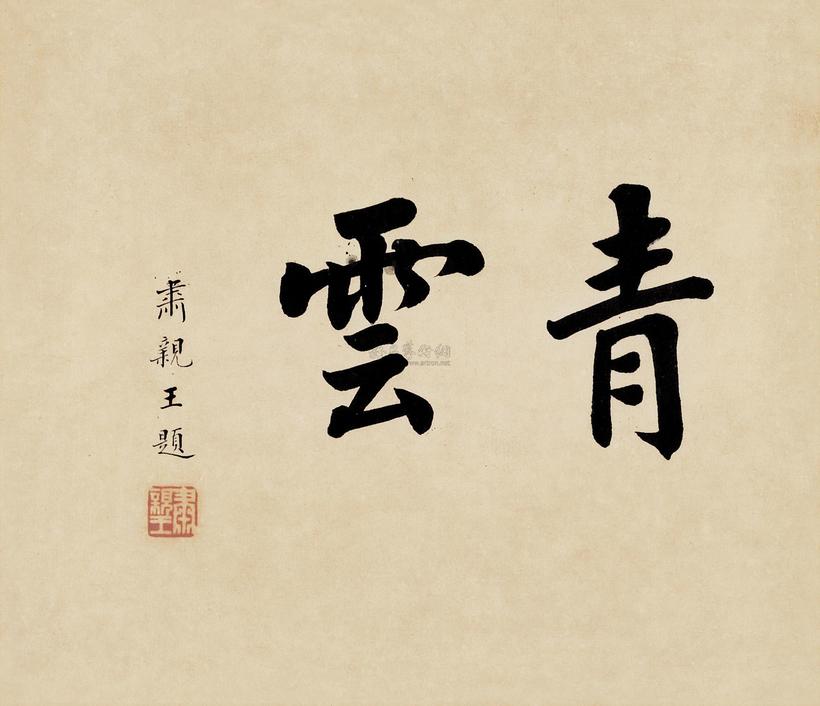 青雲
肅親王題
肅親王
www.artron.net